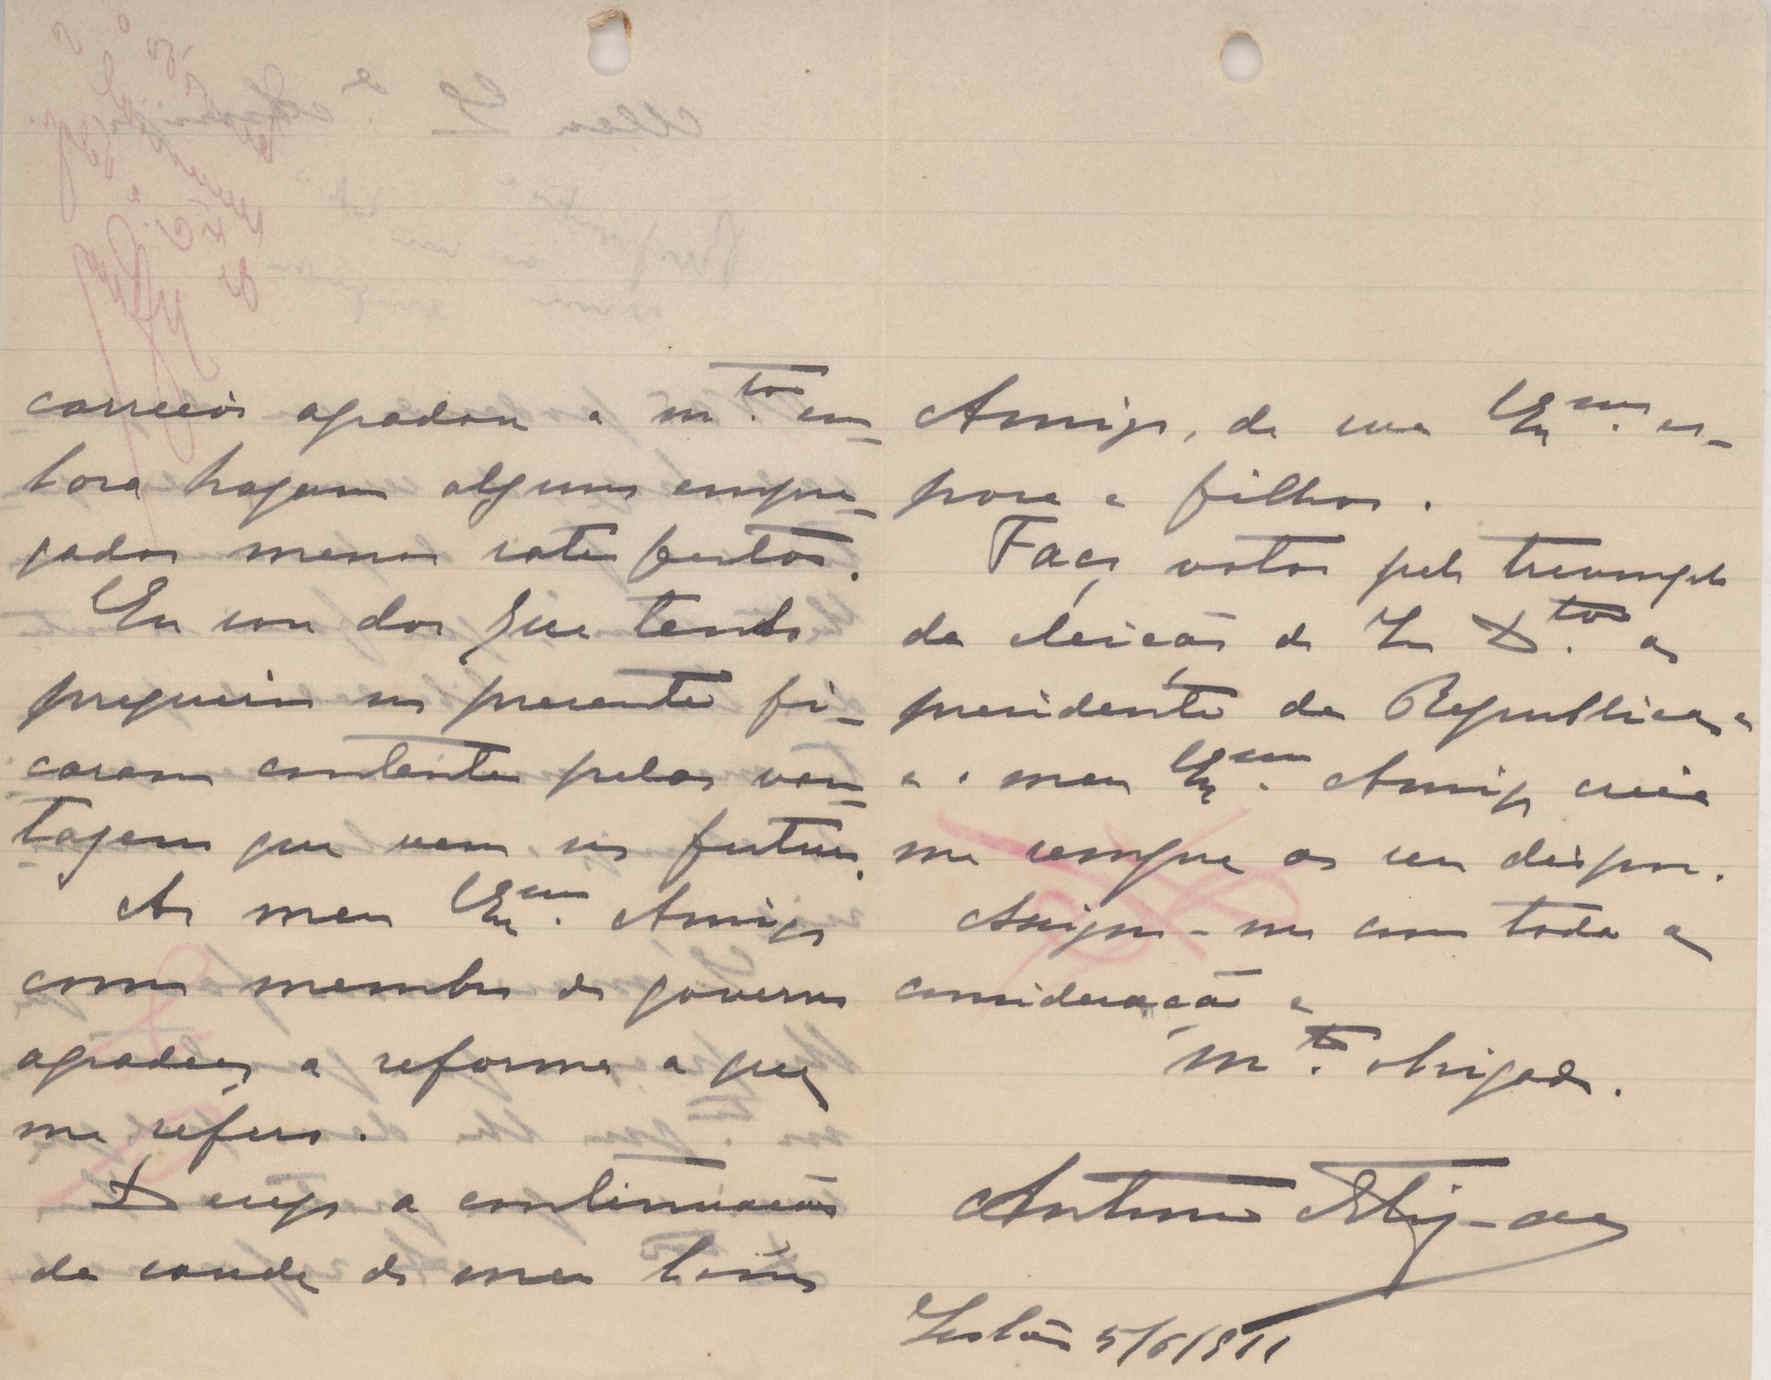 correios agradou a m.tos em-
bora hajam alguns empre-
gados menos satisfeitos.
Eu sou dos que tendo
prejuizo no presente fi-
caram contente pelas van-
tagem que vem no futuro.
Ao meu Ex.mo Amigo
como membro do governo
agradeço a reforma a que
me refiro.
Desejo a continuação
da saude do meu bom
Amigo, de sua Ex.ma es-
posa e filhos.
Faço votos pelo triumpho
da eleição do D.tor a
presidente da Republica e
e o meu Ex.mo Amigo creia
me sempre ao seu dispor.
Assigno-me com toda a
consideração e
m.to obrigado.
Antonio
Lisbôa 5/6/911